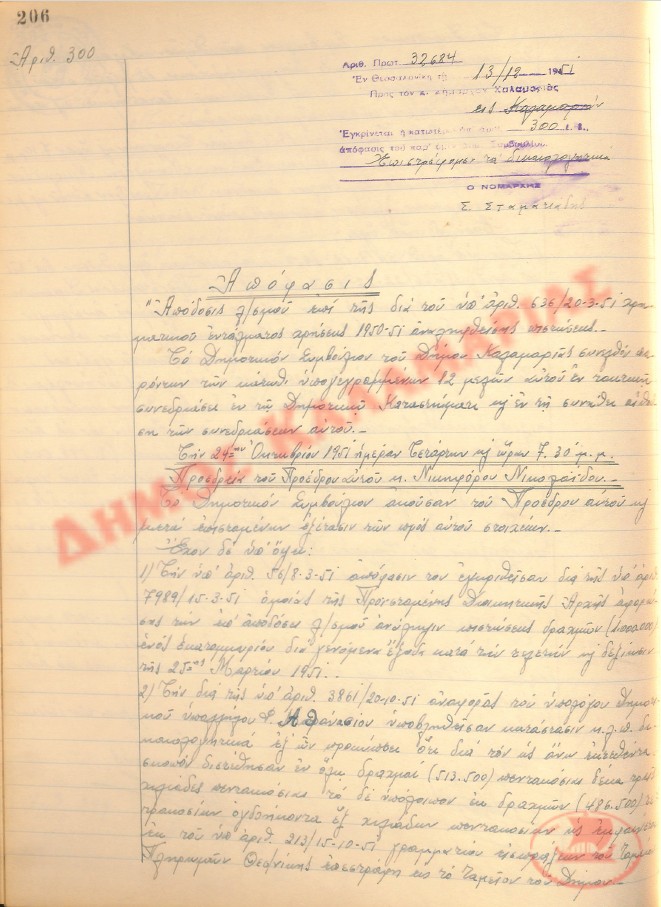 206
Ἀριθ. 300
Ἀριθ. Πρωτ. 32684
Ἐν Θεσσαλονίκῃ τῇ 13/12 1951
Πρὸς τὸν κ. Δήμαρχον Καλαμαριᾶς
εἰς Καλαμαριάν
Ἐγκρίνεται ἡ κατωτέρω ὑπ' ἀριθ. 300
ἀπόφασις τοῦ παρ' Συμβουλίου.
Ἐπιστρέφομεν τὰ δικαιολογητικά
Ο ΝΟΜΑΡΧΗΣ
Σ. Σταματιάδης
Ἀπόφασις
"Ἀπόδοσις λ/σμοῦ ἐπὶ τῆς διὰ τοῦ ὑπ' ἀριθ. 636/20-3-51 χρη-
ματικοῦ ἐντάλματος χρήσεως 1950-51 ἀναληφθείσης πιστώσεως.-
Τὸ Δημοτικὸν Συμβούλιον τοῦ Δήμου Καλαμαριᾶς συνελθὸν πα-
ρόντων τῶν κάτωθι ὑπογεγραμμένων 12 μελῶν αὐτοῦ ἐν τακτικῇ
συνεδριάσει ἐν τῷ Δημοτικῷ Καταστήματι κ' ἐν τῇ συνήθει αἰθού-
σῃ τῶν συνεδριάσεων αὐτοῦ.-
Τὴν 24ην Ὀκτωβρίου 1951 ἡμέραν Τετάρτην κ' ὥραν 7.30 μ.μ.
Προεδρείᾳ τοῦ Προέδρου αὐτοῦ κ. Νικηφόρου Νικολαΐδου.-
Τὸ Δημοτικὸν Συμβούλιον ἀκοῦσαν τοῦ Προέδρου αὐτοῦ κ'
μετὰ ἐξέτασιν τῶν πρὸς αὐτοῦ στοιχείων.-
Ἔχον δὲ ὑπ' ὄψει:
1) Τὴν ὑπ' ἀριθ. 56/8-3-51 ἀπόφασίν του ἐγκριθεῖσαν διὰ τῆς ὑπ' ἀριθ.
7989/15-3-51 ὁμοίας τῆς Προϊσταμένης Διοικητικῆς Ἀρχῆς
τὴν ἐπ' ἀποδόσει λ/σμοῦ ἀνάληψιν πιστώσεως δραχμῶν (1.000.000)
ἑνὸς ἑκατομμυρίου διὰ γενόμενα ἔξοδα κατὰ τὴν τελετὴν κ' δεξίωσιν
τῆς 25ης Μαρτίου 1951.
2) Τὴν διὰ τῆς ὑπ' ἀριθ. 3861/20-10-51 ἀναφορᾶς τοῦ ὑπολόγου δημο-
τικοῦ ὑπαλλήλου Ἀθανασίου ὑποβληθεῖσαν κατάστασιν κ.λ.π. δι-
καιολογητικὰ ἐξ ὧν προκύπτει ὅτι διὰ τὸν ὡς ἄνω ἐκτεθέντα
σκοπὸν διετέθησαν ἐν ὅλῳ δραχμαὶ (513.500) πεντακόσιαι δέκα τρεῖς
χιλιάδες πεντακόσιαι τὸ δὲ ὑπόλοιπον ἐκ δραχμῶν (486.500) τε-
τρακοσίων ὀγδοήκοντα ἓξ χιλιάδων πεντακοσίων ὡς ἐμφαίνεται
ἐκ τοῦ ὑπ' ἀριθ. 213/15-10-51 γραμματίου εἰσπράξεως τοῦ Ταμείου
Πληρωμῶν Θεσ/νίκης ἐπεστράφη εἰς τὸ Ταμεῖον τοῦ Δήμου.-
ΔΗΜΟΣ ΚΑΛΑΜΑΡΙΑΣ